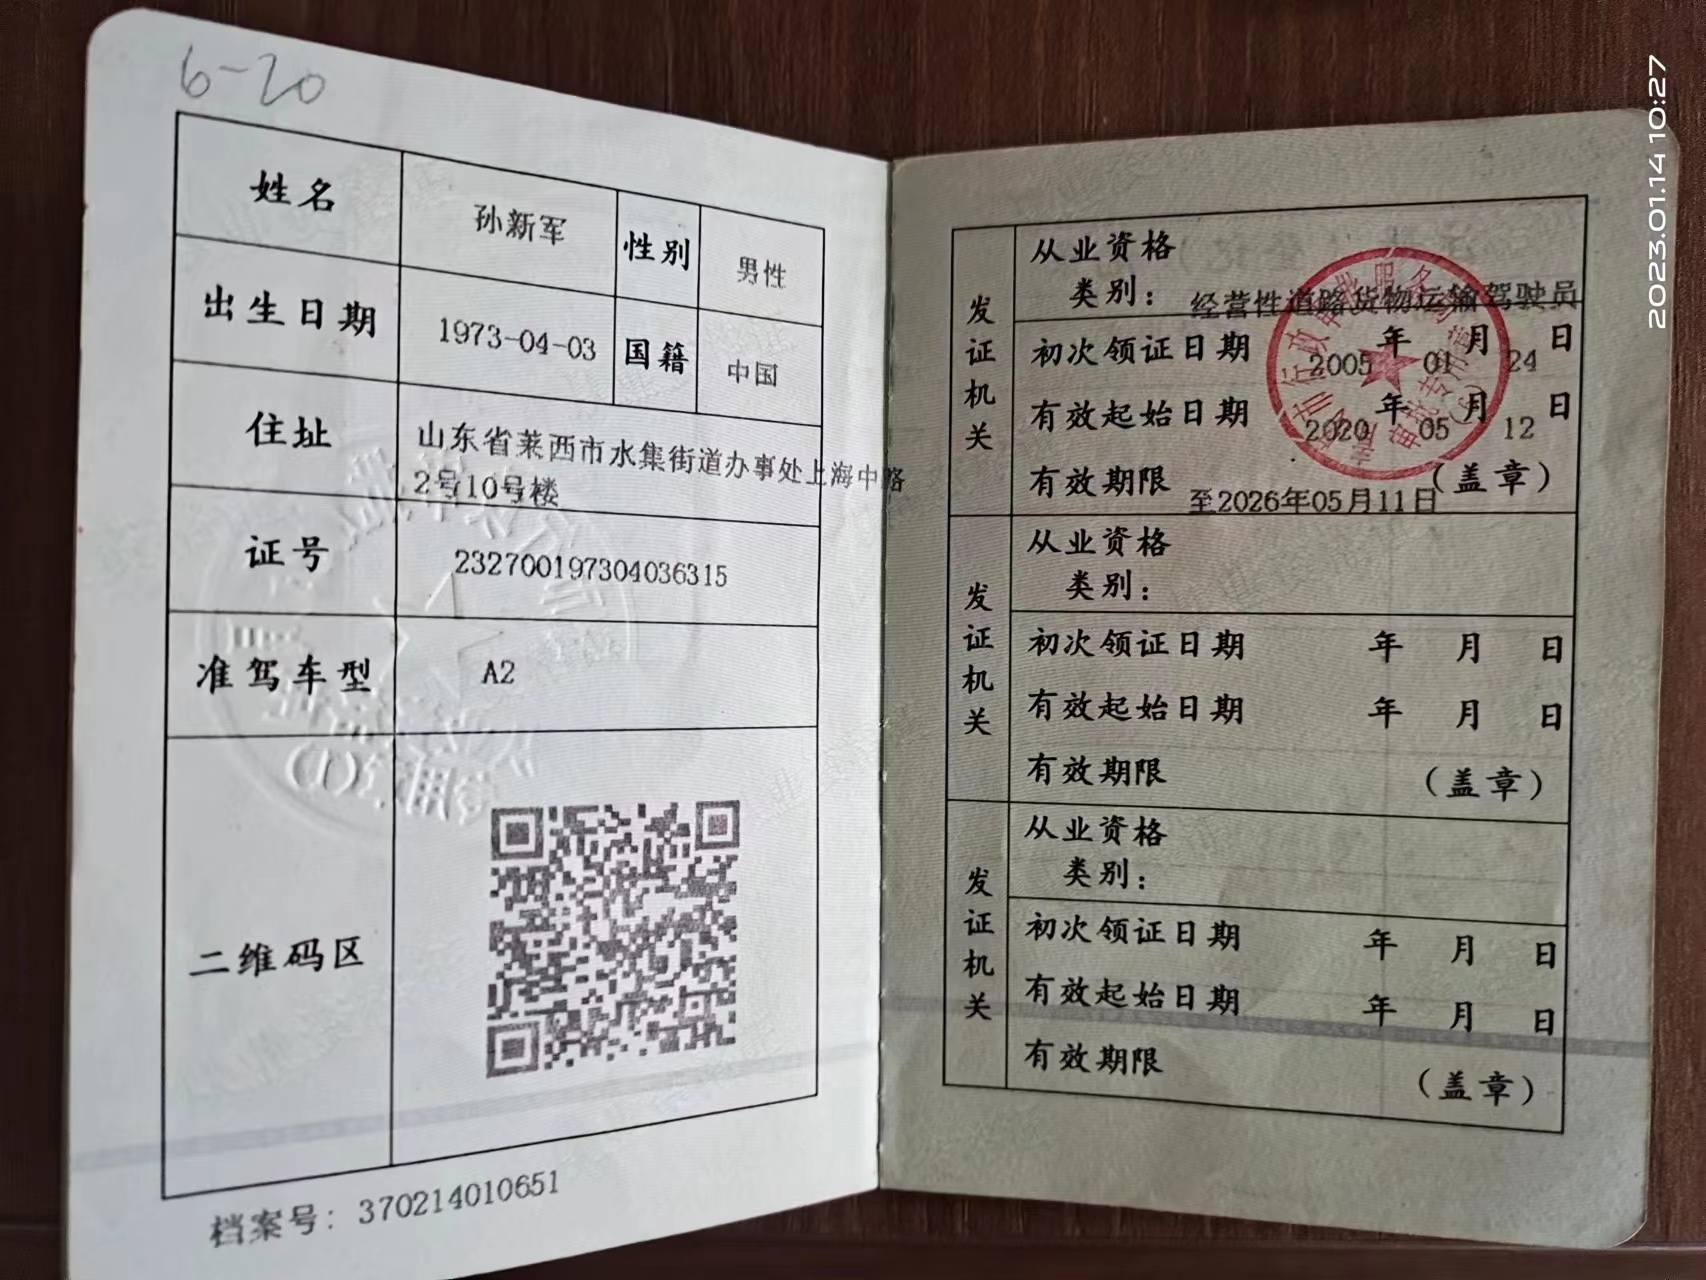 6-20
姓名 孙新军 性别 男性
出生日期 1973-04-03 国籍 中国
住址 山东省莱西市水集街道办事处上海中路
2号10号楼
证号 232700197304036315
准驾车型 A2
二维码区
档案号: 370214010651
发证机关
从业资格
类别: 经营性道路货物运输驾驶员
初次领证日期 2005年01月24日
有效起始日期 2020年05月12日
有效期限 至2026年05月11日 (盖章)
发证机关
从业资格
类别:
初次领证日期 年 月 日
有效起始日期 年 月 日
有效期限 (盖章)
发证机关
从业资格
类别:
初次领证日期 年 月 日
有效起始日期 年 月 日
有效期限 (盖章)
2023.01.14 10:27